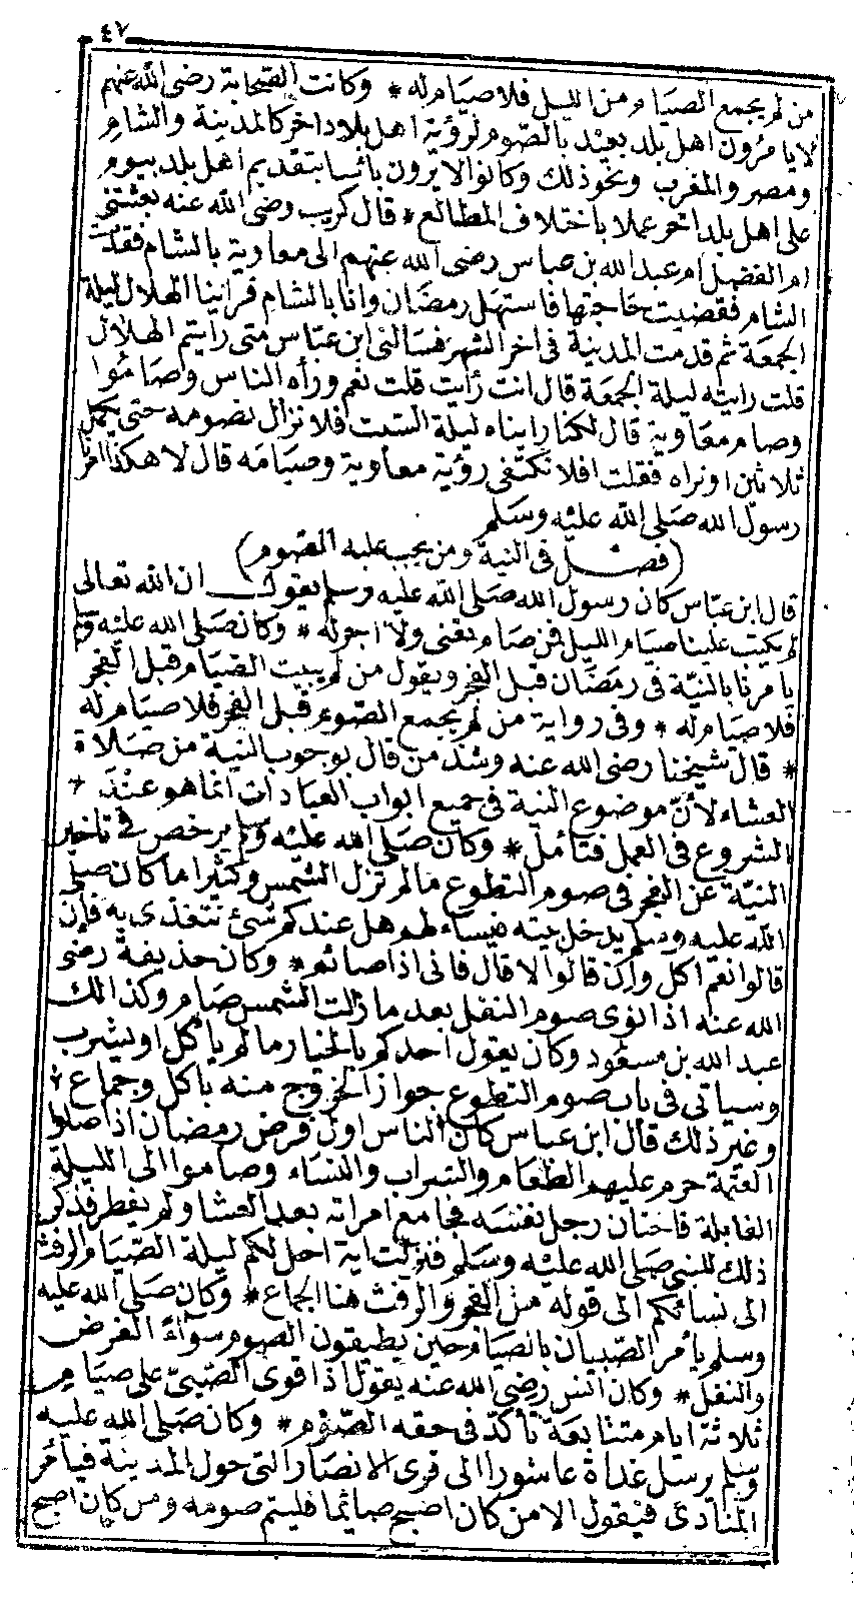 ٤٧
من لم يجمع الصيام من الليل فلا صيام له * وكانت الصحابة رضى الله عنهم
لا يأمرون اهل بلد بعيد بالصوم لرؤية اهل بلاد اخر كالمدينة والشام
ومصر والمغرب ونحو ذلك وكانوا لا يرون بائسا بتقديم اهل بلد بيوم
على اهل بلد اخر عملا باختلاف المطالع * قال كريب رضى الله عنه بعثتنى
ام الفضل ام عبد الله بن عباس رضى الله عنهم الى معاوية بالشام فقدمت
الشام فقضيت حاجتها فاستهل رمضان وانا بالشام فرأينا الهلال ليلة
الجمعة ثم قدمت المدينة فى اخر الشهر فسالنى ابن عباس متى رايتم الهلال
قلت رايته ليلة الجمعة قال انت رأيت قلت نعم ورأه الناس وصاموا
وصام معاوية قال لكنا رايناه ليلة السبت فلا نزال نصومه حتى يكمل
ثلاثين او نراه فقلت افلا نكتفى رؤية معاوية وصيامه قال لا هكذا امرنا
رسول الله صلى الله عليه وسلم
(فصل فى النية ومن يجب عليه الصوم)
قال ابن عباس كان رسول الله صلى الله عليه وسلم يقول ان الله تعالى
لم يكتب علينا صيام الليل فمن صام تعنى ولا اجر له * وكان صلى الله عليه وسلم
يامرنا بالنية فى رمضان قبل الفجر ويقول من لم يبيت الصيام قبل الفجر
فلا صيام له * وفى رواية من لم يجمع الصوم قبل الفجر فلا صيام له
* قال شيخنا رضى الله عنه وشذ من قال بوجوب النية من صلاة
العشاء لأن موضوع النية فى جميع ابواب العبادات انما هو عند
الشروع فى العمل فتأمل * وكان صلى الله عليه وسلم يرخص فى تاخير
النية عن الفجر فى صوم التطوع ما لم تزل الشمس وكثيرا ما كان صلى
الله عليه وسلم يدخل بيته فيساءلهم هل عندكم شئ نتغذى به فان
قالوا نعم اكل وان قالوا لا قال فانى اذا صائم * وكان حذيفة رضى
الله عنه اذا نوى صوم النفل بعد ما زالت الشمس صام وكذالك
عبد الله بن مسعود وكان يقول احدكم بالخيار ما لم يأكل او يشرب
وسياتى فى باب صوم التطوع جواز الخروج منه باكل وجماع
وغير ذلك قال ابن عباس كان الناس اول فرض رمضان اذا صلوا
العتمة حرم عليهم الطعام والشراب والنساء وصاموا الى الليلة
القابلة فاختان رجل نفسه فجامع امراته بعد العشا ولم يفطر فذكر
ذلك للنبى صلى الله عليه وسلم فنزلت اية احل لكم ليلة الصيام الرفث
الى نسائكم الى قوله من الفجر والرفث هنا الجماع * وكان صلى الله عليه
وسلم يأمر الصبيان بالصيام حين يطيقون الصوم سواءً الفرض
والنفل * وكان انس رضى الله عنه يقول اذا قوى الصبى على صيام
ثلاثة ايام متتابعة تأكد فى حقه الصوم * وكان صلى الله عليه
وسلم يرسل غداة عاشورا الى قرى الانصار التى حول المدينة فيأمر
المنادى فيقول الا من كان اصبح صائما فليتم صومه ومن كان اصبح